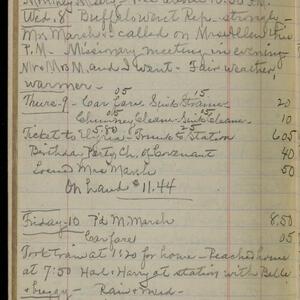 Wed. 8th Buffalo went Rep. strongly
Mrs Marsh & I called on Mrs Allen the
P.M. - Missionary meeting in evening
Mrs M. and I went - Fair weather,
warmer -
05 15
Thurs-9 - Car fare Sink 20
05 05
Chimney Clean - Sink Cleaner - 10
5.80 25
Ticket to Elyria - Trunk to Station 605
Birthday Party Ch. of Covenant 40
Mrs Marsh 50
On hand $11.44
Friday-10 P'd M. Marsh 8.50
Car fare 05
Took train at 11:20 for home - Reached home
at 7:50 Had Harry at station with Belle
& buggy - Rain & mud -